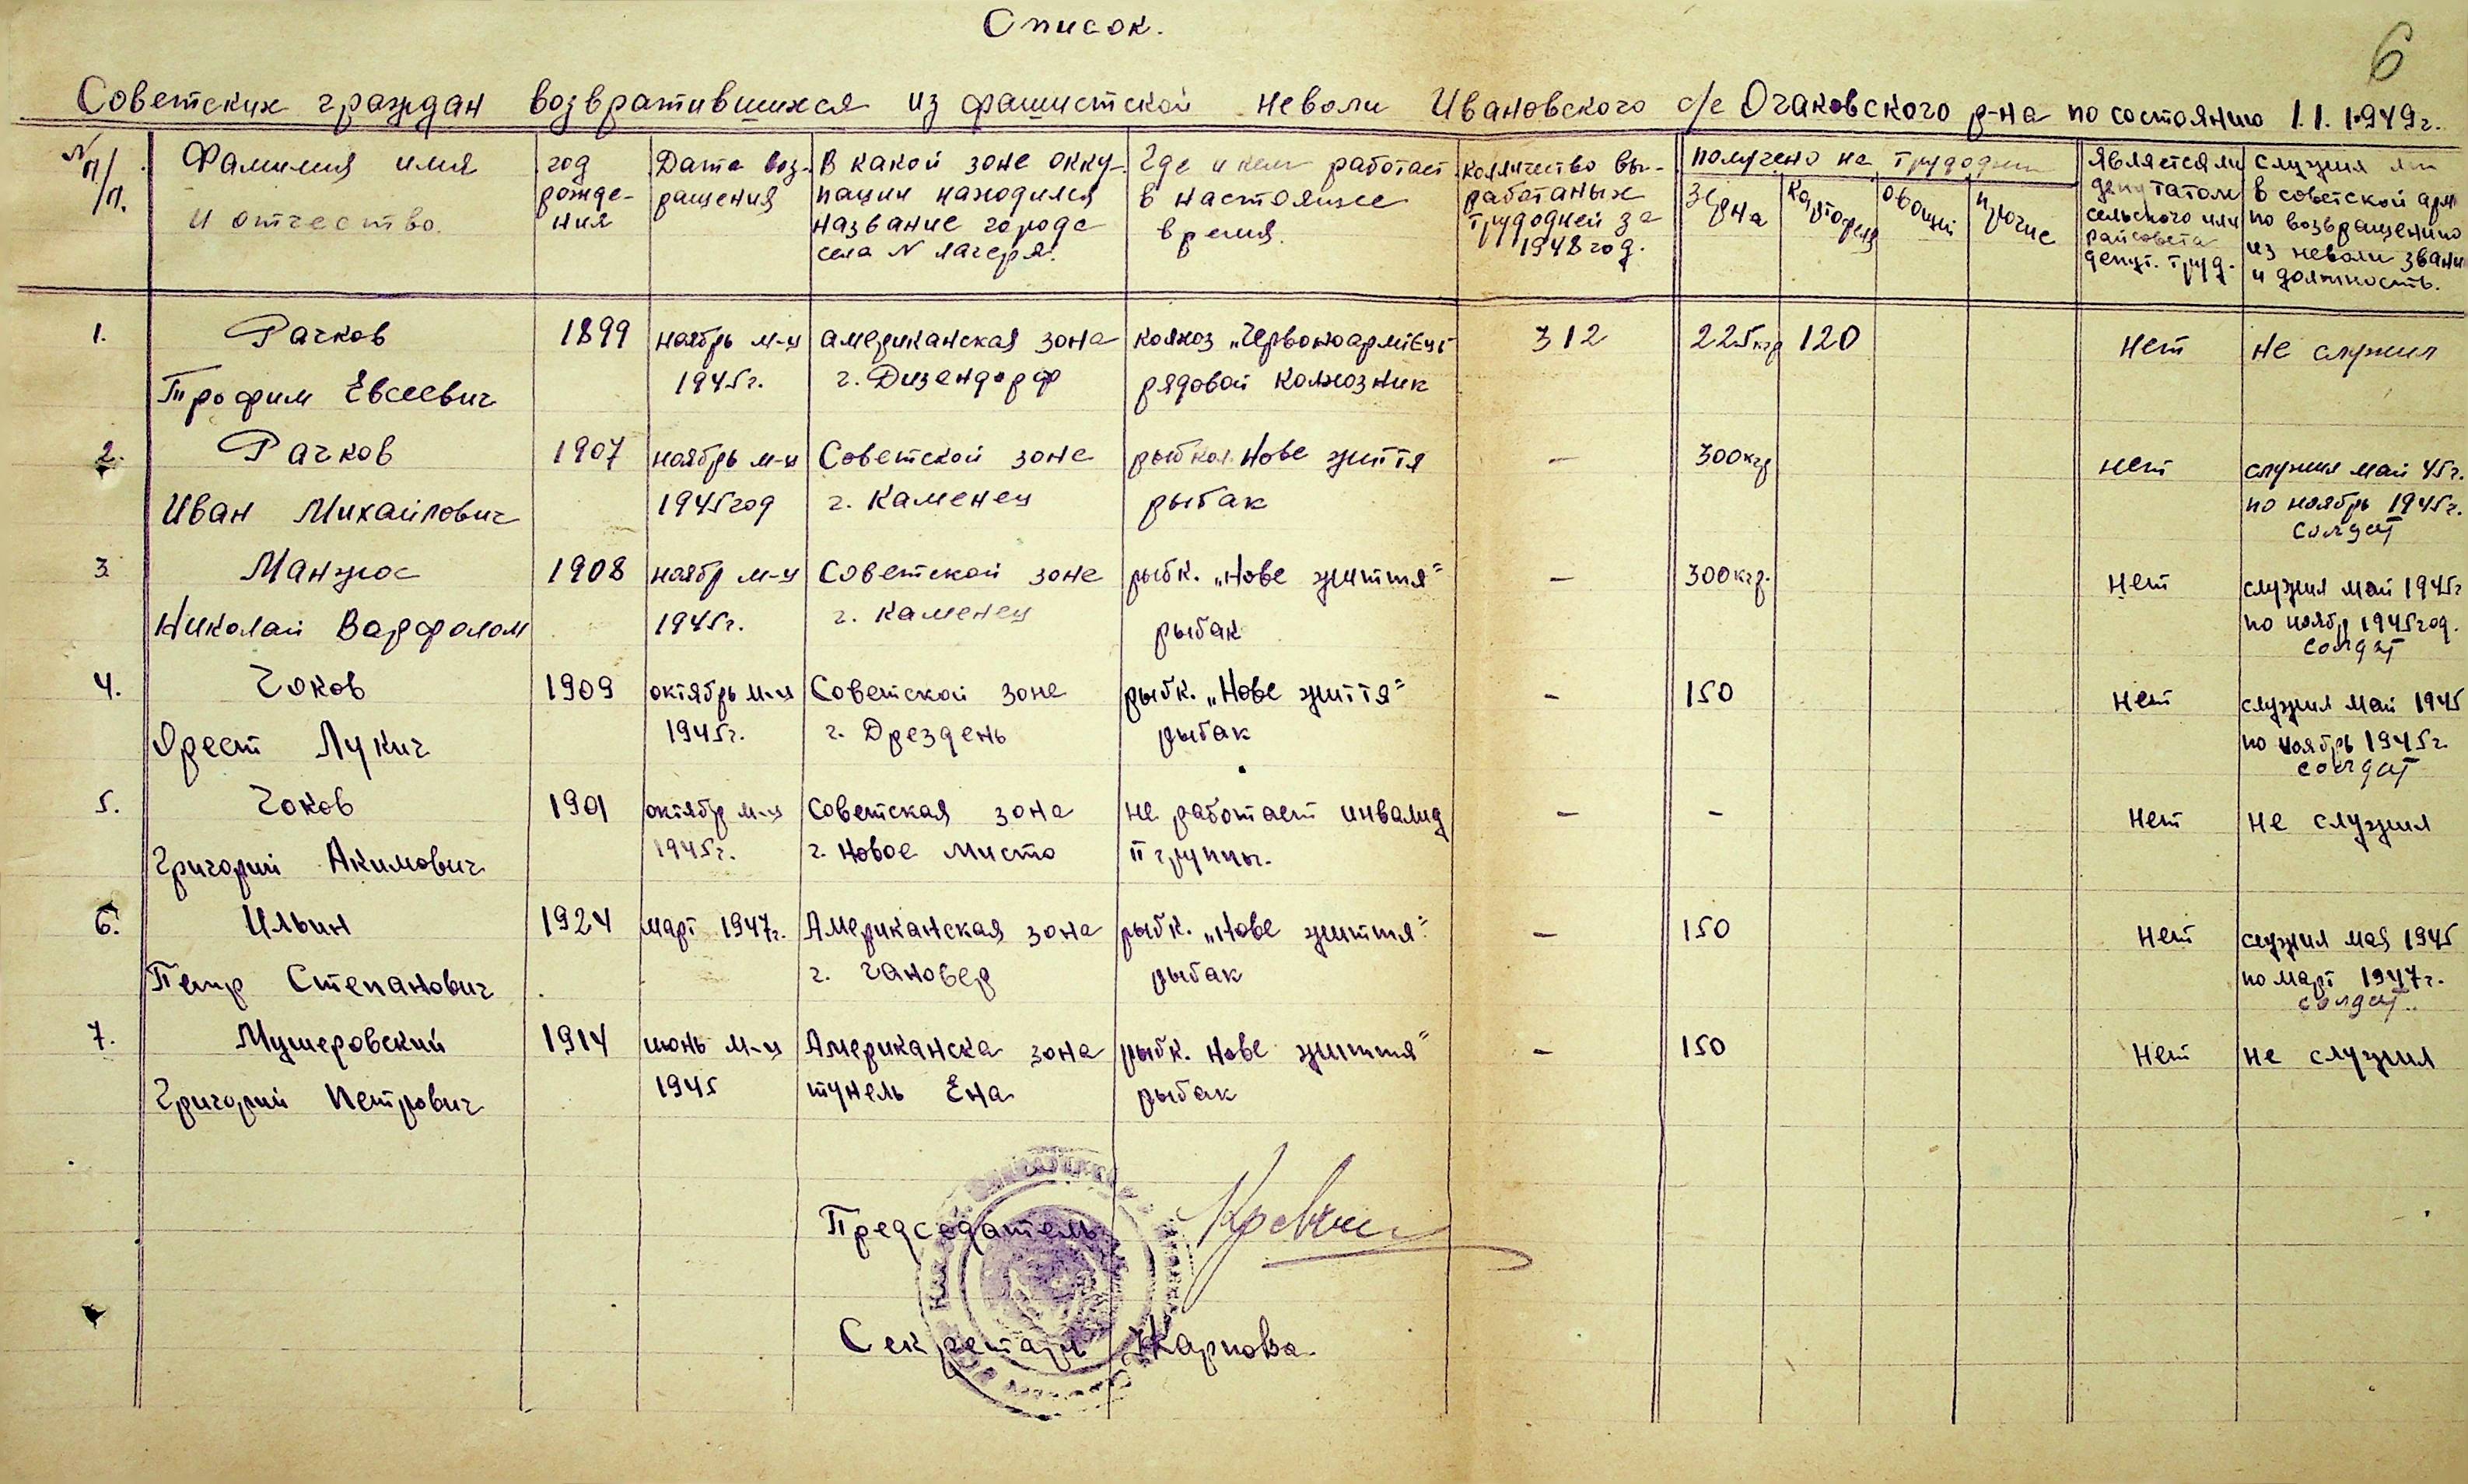 Список.
6
Советских граждан возвратившихся из фашистской неволи Ивановского с/с Очаковского р-на по состоянию 1.1.1949г.
N п/п.
Фамилия имя
и отчество.
год
рожде-
ния
Дата воз-
ращения
В какой зоне окку-
пации находился
название города
села N лагеря.
Где и кем работает
в настоящее
время.
колличество вы-
работаных
трудодней за
1948 год.
получено на трудодни
зерна
картофеля
овощей
прочие
является ли
депутатом
сельского или
райсовета
депут. труд.
служил ли
в советской арм
по возвращению
из неволи звани
и должность.
1. Рачков 1899 ноябрь м-ц американская зона колхоз „Червоноармієць" 312 225кгр 120 нет не служил
Трофим Евсеевич 1945г. г. Дизендорф рядовой колхозник
2. Рачков 1907 ноябрь м-ц Советской зоне рыбкол. Нове життя — 300кгр нет служил май 45г.
Иван Михайлович 1945год г. Каменец рыбак по ноябрь 1945г.
солдат
3 Манжос 1908 ноябр м-ц Советской зоне рыбк. „Нове життя" — 300кгр. нет служил май 1945г
Николай Варфолом 1945г. г. Каменец рыбак по ноябр 1945год.
солдат
4. Чоков 1909 октябрь м-ц Советской зоне рыбк. „Нове життя" - 150 нет служил май 1945
Орест Лукич 1945г. г. Дрездень рыбак по ноябрь 1945г.
солдат
5. Чоков 1901 октябр м-ц Советская зона не работает инвалид — - нет не служил
Григорий Акимович 1945г. г. Новое Място II группы.
6. Ильин 1924 март 1947г. Американская зона рыбк. „Нове життя" — 150 нет служил мая 1945
Петр Степанович г. Гановер рыбак по март 1947г.
солдат.
7. Мушеровский 1914 июнь м-ц Американска зона рыбк. Нове життя" - 150 нет не служил
Григорий Петрович 1945 тунель Ена рыбак
Председатель
Секретарь Жарнова.